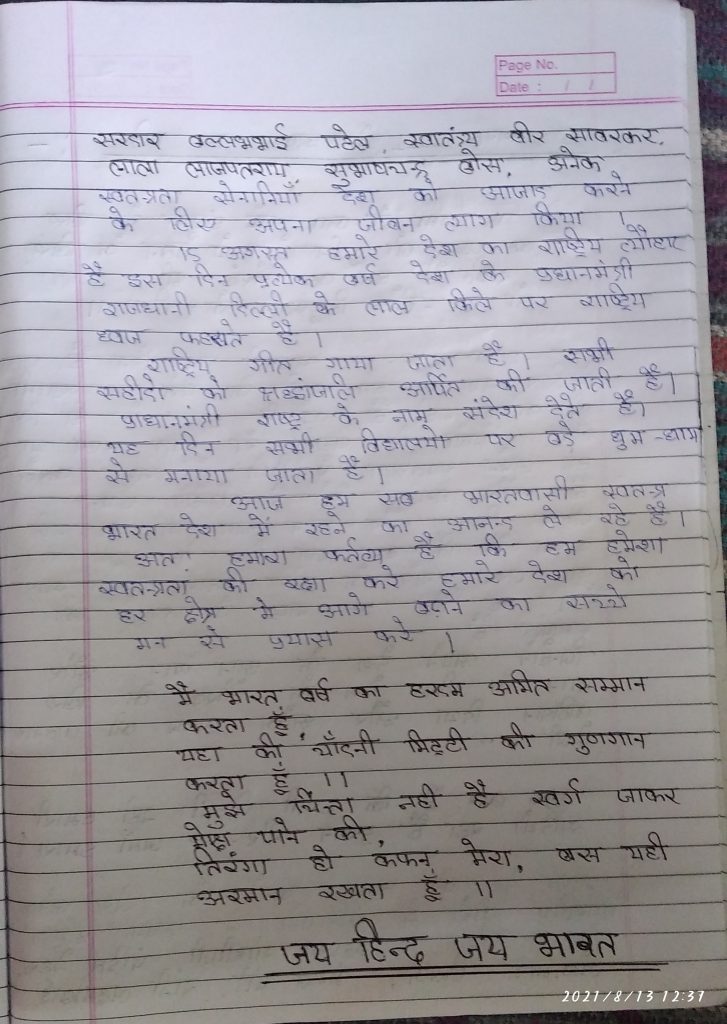 Page No.
Date : / /
सरदार वल्लभभाई पटेल, स्वातंत्र्य वीर सावरकर,
लाला लाजपतराय, सुभाषचन्द्र बोस, अनेक
स्वतन्त्रता सेनानियाँ देश को आजाद करने
के लिए अपना जीवन त्याग किया ।
15 अगस्त हमारे देश का राष्ट्रिय त्यौहार
है इस दिन प्रत्येक वर्ष देश के प्रधानमंत्री
राजधानी दिल्ली के लाल किले पर राष्ट्रिय
ध्वज फहराते है ।
राष्ट्रिय गीत गाया जाता है । सभी
सहीदो को श्रद्धांजलि अर्पित की जाती है।
प्राधानमंत्री राष्ट्र के नाम संदेश देते है।
यह दिन सभी विद्यालयो पर बडे धुम-धाम
से मनाया जाता है ।
आज हम सब भारतवासी स्वतन्त्र
भारत देश में रहने का आनन्द ले रहे है ।
अतः हमारा कर्तव्य है कि हम हमेशा
स्वतन्त्रता की रक्षा करे हमारे देश को
हर क्षेत्र मे आगे बढाने का सच्चे
मन से प्रयास करे ।
मैं भारत वर्ष का हरदम अमित सम्मान
करता हूँ,
यहा की चाँदनी मिट्टी की गुणगान
करता हूँ ।।
मुझे चिन्ता नही है स्वर्ग जाकर
मोक्ष पाने की,
तिरंगा हो कफन मेरा, बस यही
अरमान रखता हूँ ।।
जय हिन्द जय भारत
2021/8/13 12:37